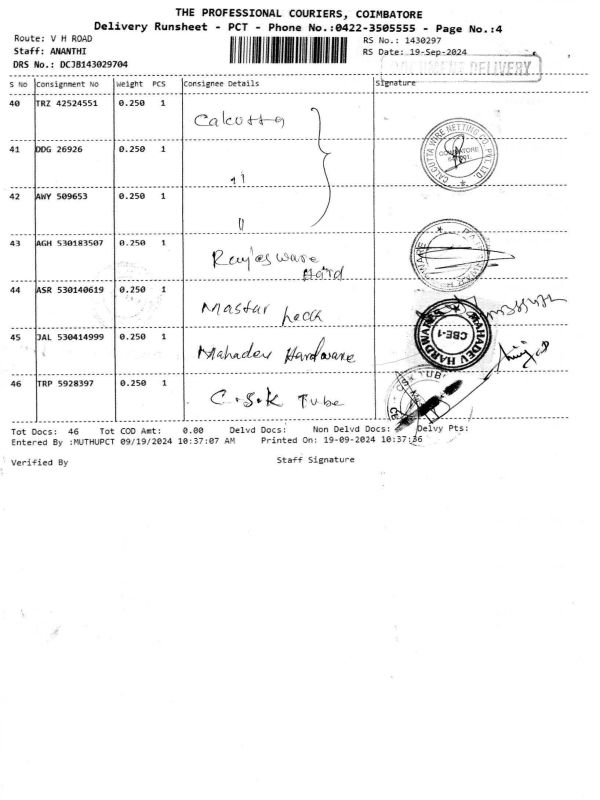 THE PROFESSIONAL COURIERS, COIMBATORE
Delivery Runsheet - PCT - Phone No.:0422-3505555 - Page No.:4
Route: V H ROAD
RS No.: 1430297
Staff: ANANTHI
RS Date: 19-Sep-2024
DRS No.: DCJB143029704
DELIVERY
S No Consignment No Weight PCS Consignee Details Signature
40 TRZ 42524551 0.250 1 Calcutta
41 DDG 26926 0.250 1 "
CALCUTTA WIRE NETTING CO. PVT. LTD.
COIMBATORE
42 AWY 509653 0.250 1 "
43 AGH 530183507 0.250 1
44 ASR 530140619 0.250 1 Mastar
45 JAL 530414999 0.250 1 Mahadev Hardware
MAHADEV HARDWARES
CBE-1
46 TRP 5928397 0.250 1 C.S.K Tube
Tot Docs: 46 Tot COD Amt: 0.00 Delvd Docs: Non Delvd Docs: Delvy Pts:
Entered By :MUTHUPCT 09/19/2024 10:37:07 AM Printed On: 19-09-2024 10:37:36
Verified By
Staff Signature